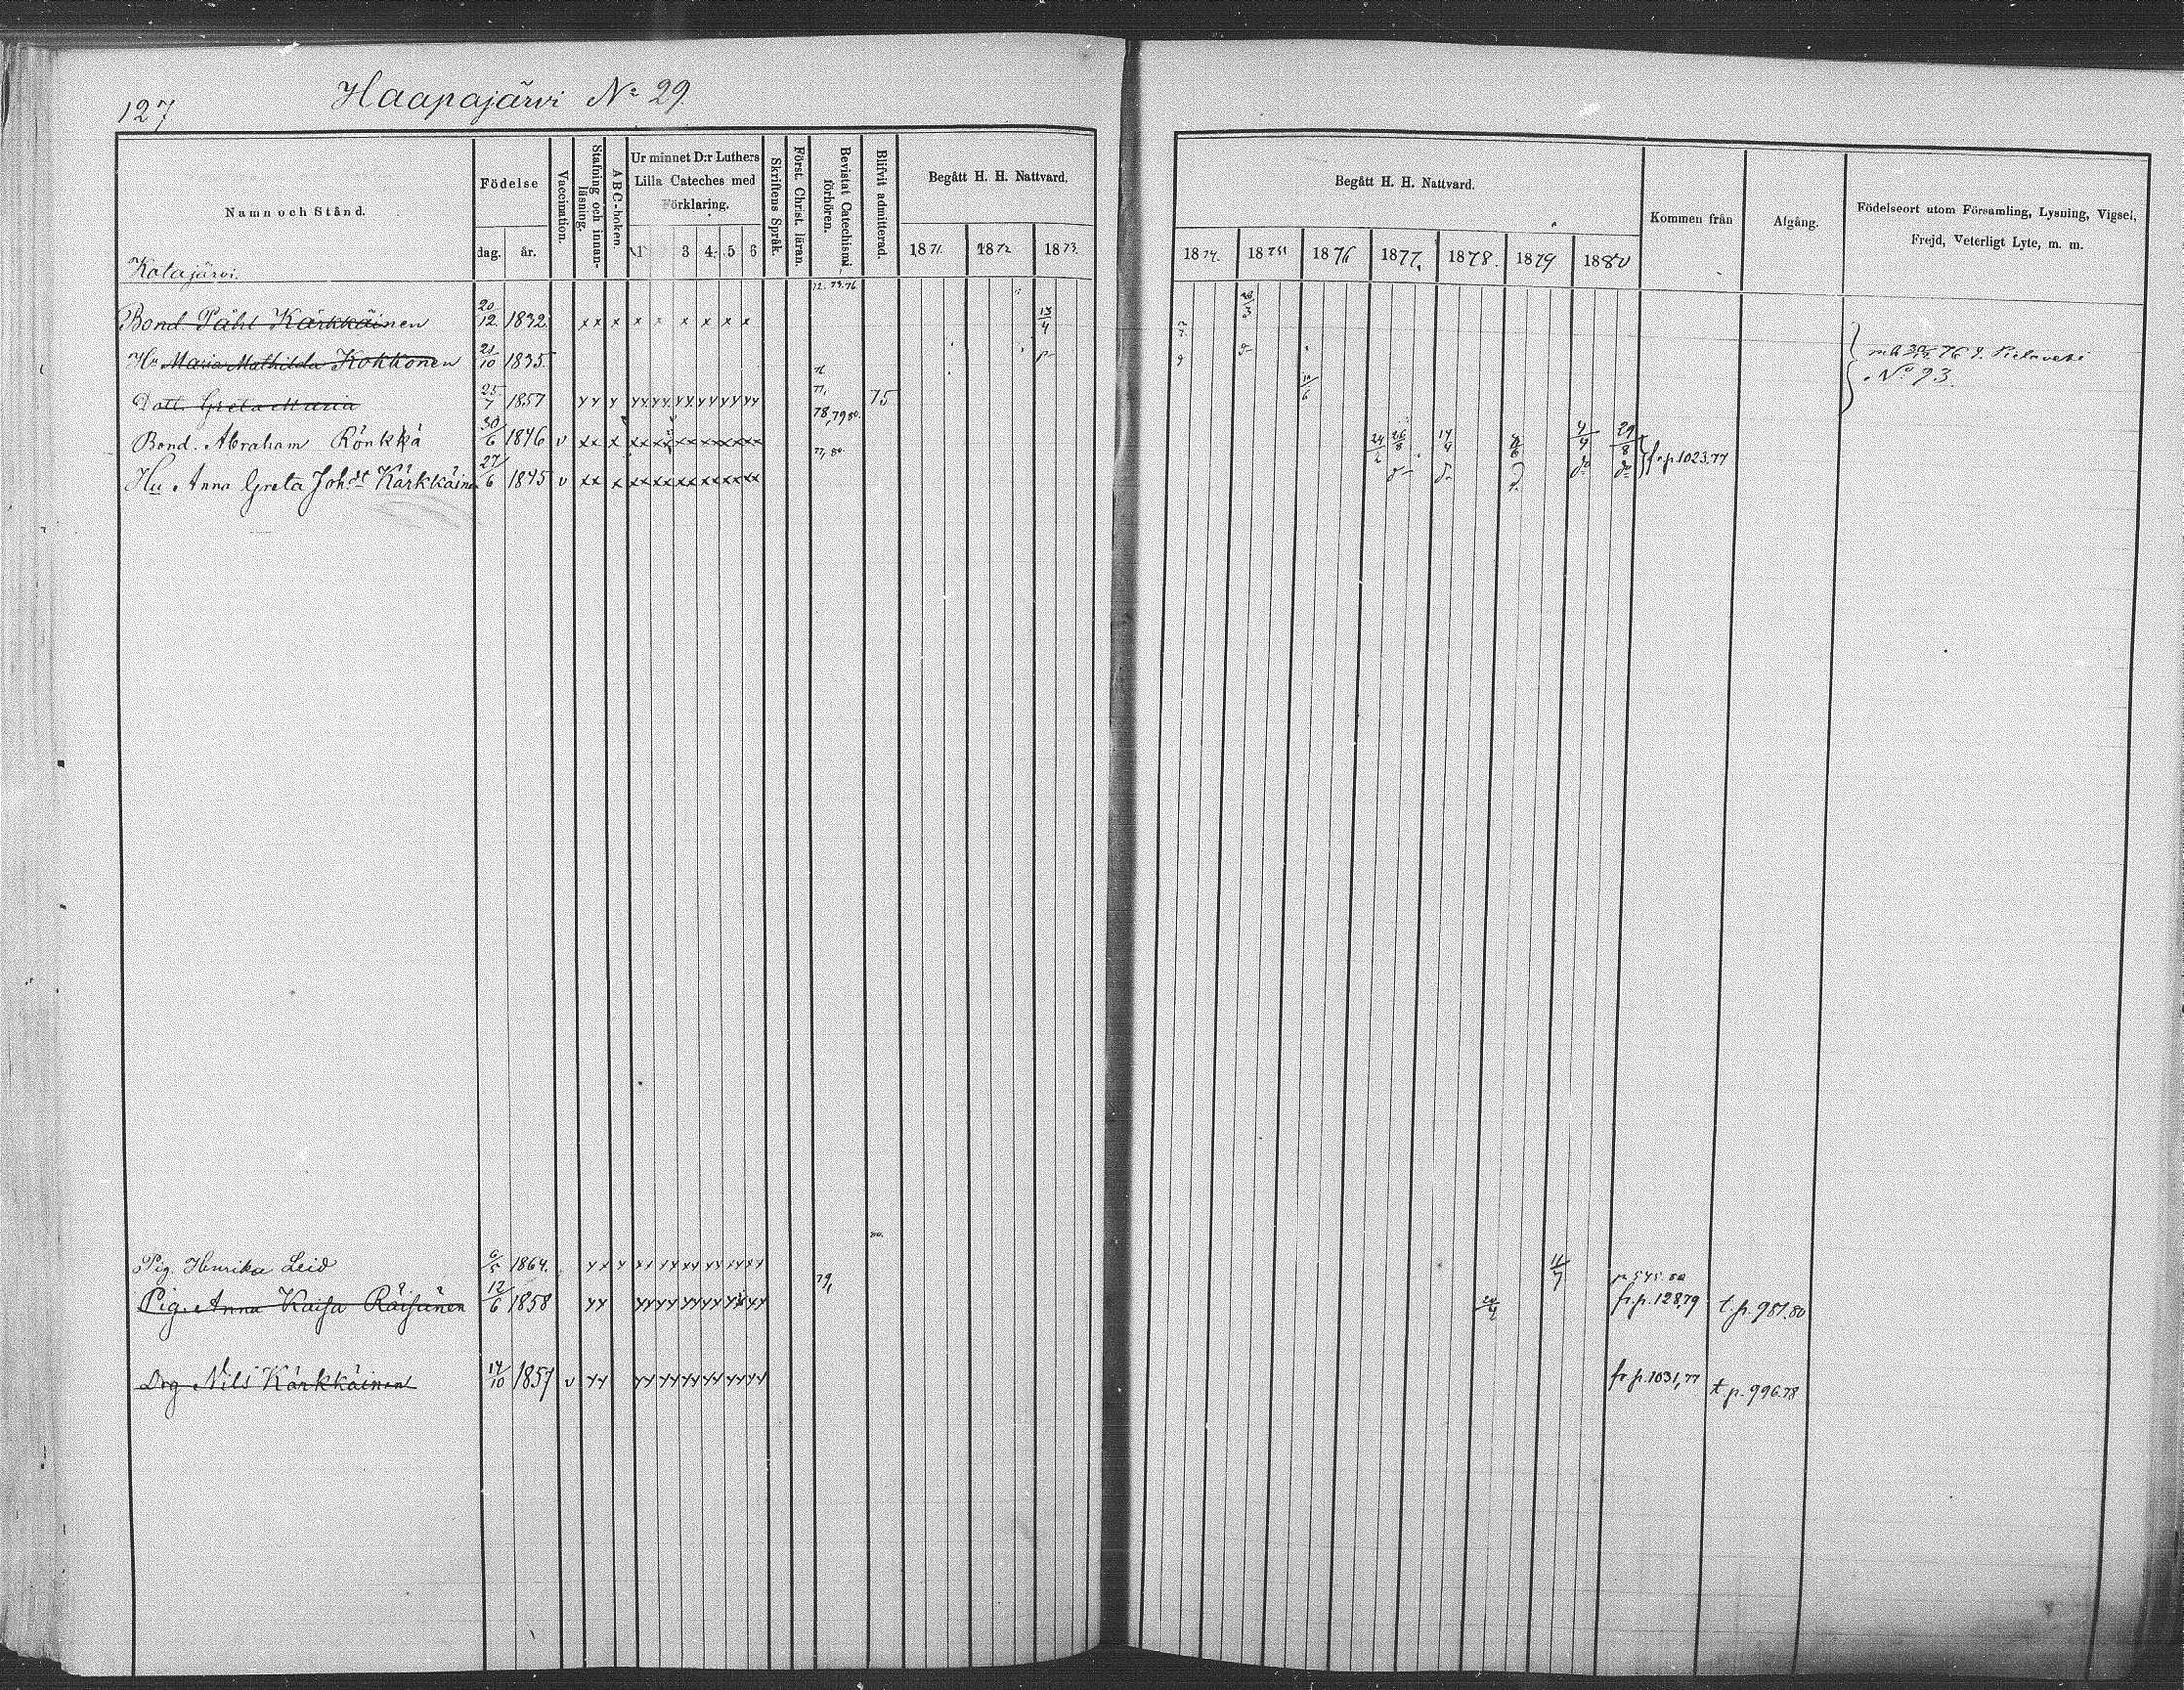 127
Haapajärvi No 29
Namn och Stånd.
Födelse
dag. år.
Vaccination.
Stafning och innanläsning.
ABC-boken.
Ur minnet D:r Luthers Lilla Cateches med Förklaring.
1 3 4 5 6
Skriftens Språk.
Först. Christ. läran.
Bevistat Catechismi förhören.
Blifvit admitterad.
Begått H. H. Nattvard.
1871. 1872 1873.
Begått H. H. Nattvard.
1874. 1875 1876 1877. 1878. 1879 1880
Kommen från
Afgång.
Födelseort utom Församling, Lysning, Vigsel, Frejd, Veterligt Lyte, m. m.
Kotajärvi.
Bond Påhl Kärkkäinen 20/12. 1832. x x x x x x x x x 13/4
Hu Maria Mathilda Kokkonen 21/10 1835.
No 93.
Dott. Greta Maria 25/7 1857 77, 75
Bond. Abraham Rönkkä 30/6 1846 v 78, 79 80. 24/2 26/8 14/4 4/4 29/8 fr.p. 1023.77
Hu Anna Greta Joh.dr Kärkkäinen 27/6 1845 v 77, 80.
Pig. Henrika Leid 6/5 1864. 11/7 p. 545. 80
Pig. Anna Kaisa Räisänen 12/6 1858 79, fr.p. 128,79 t.p. 981.80
Drg Nils Kärkkäinen 14/10 1857 v fr.p. 1031,77 t.p. 996.78